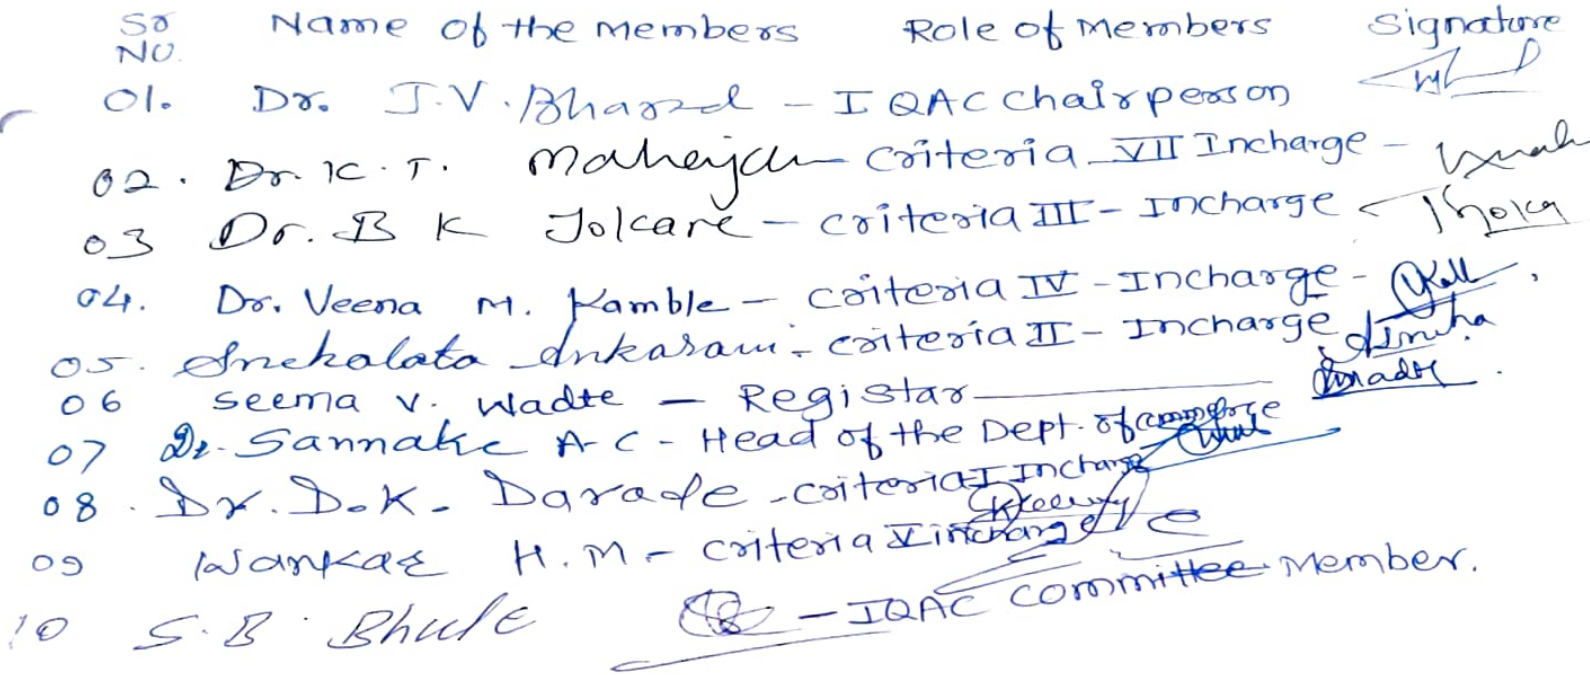 Sr Name of the Members Role of Members Signature
No.
01. Dr. J.V. Bharad - IQAC Chairperson
02. Dr. K.T. Criteria VII Incharge -
03 Dr. B K Jolkare - criteria III - Incharge -
04. Dr. Veena M. Kamble - criteria IV - Incharge -
05. Snehalata Ankaram - criteria II - Incharge
06 Seema V. Wadte - Registar
07 Dr. Sannake A-C - Head of the Dept. of commerce
08. Dr. D.K. Darade - criteria I Incharge
09 Wankar H.M - criteria V incharge
10 S.B. Bhule - IQAC Committee Member.